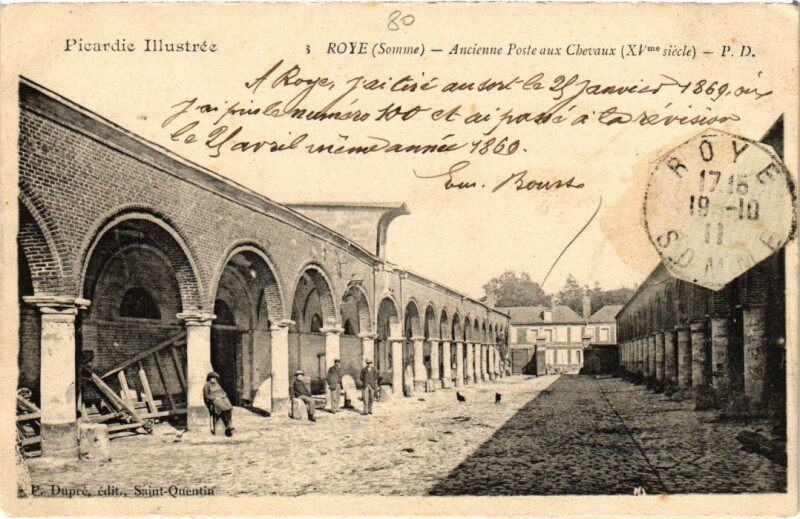 80
Picardie Illustrée
3 ROYE (Somme) — Ancienne Poste aux Chevaux (XVme siècle) — P. D.
A Roye, j'ai tiré au sort le 25 Janvier 1869, où
j'ai pris le numéro 100 et ai passé à la révision
le 25 avril même année 1869.
Em. Bourse
ROYE
17 15
19 -10
11
SOMME
P. Dupré, édit., Saint-Quentin